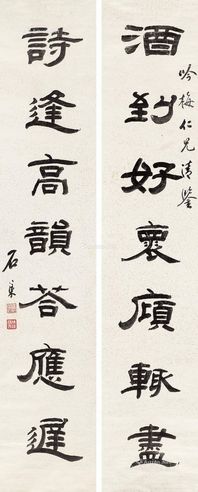 酒到好褱傾輒盡
吟梅仁兄清鑒
詩逢高韻荅應遲
石